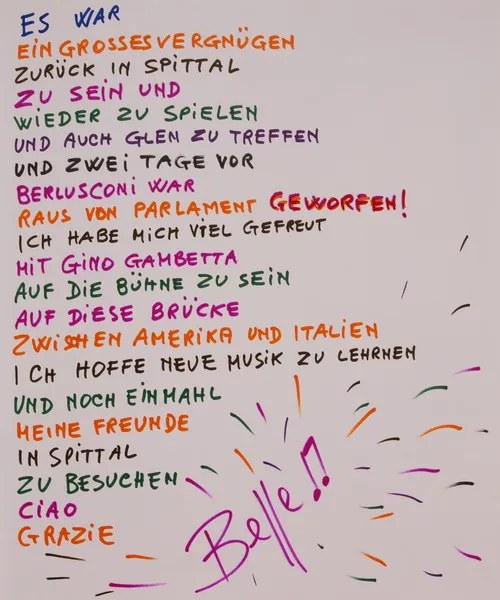 ES WAR
EIN GROSSES VERGNÜGEN
ZURÜCK IN SPITTAL
ZU SEIN UND
WIEDER ZU SPIELEN
UND AUCH GLEN ZU TREFFEN
UND ZWEI TAGE VOR
BERLUSCONI WAR
RAUS VON PARLAMENT GEWORFEN!
ICH HABE MICH VIEL GEFREUT
MIT GINO GAMBETTA
AUF DIE BÜHNE ZU SEIN
AUF DIESE BRÜCKE
ZWISCHEN AMERIKA UND ITALIEN
ICH HOFFE NEUE MUSIK ZU LEHRNEN
UND NOCH EINMAHL
MEINE FREUNDE
IN SPITTAL
ZU BESUCHEN
CIAO
GRAZIE
Belle!!